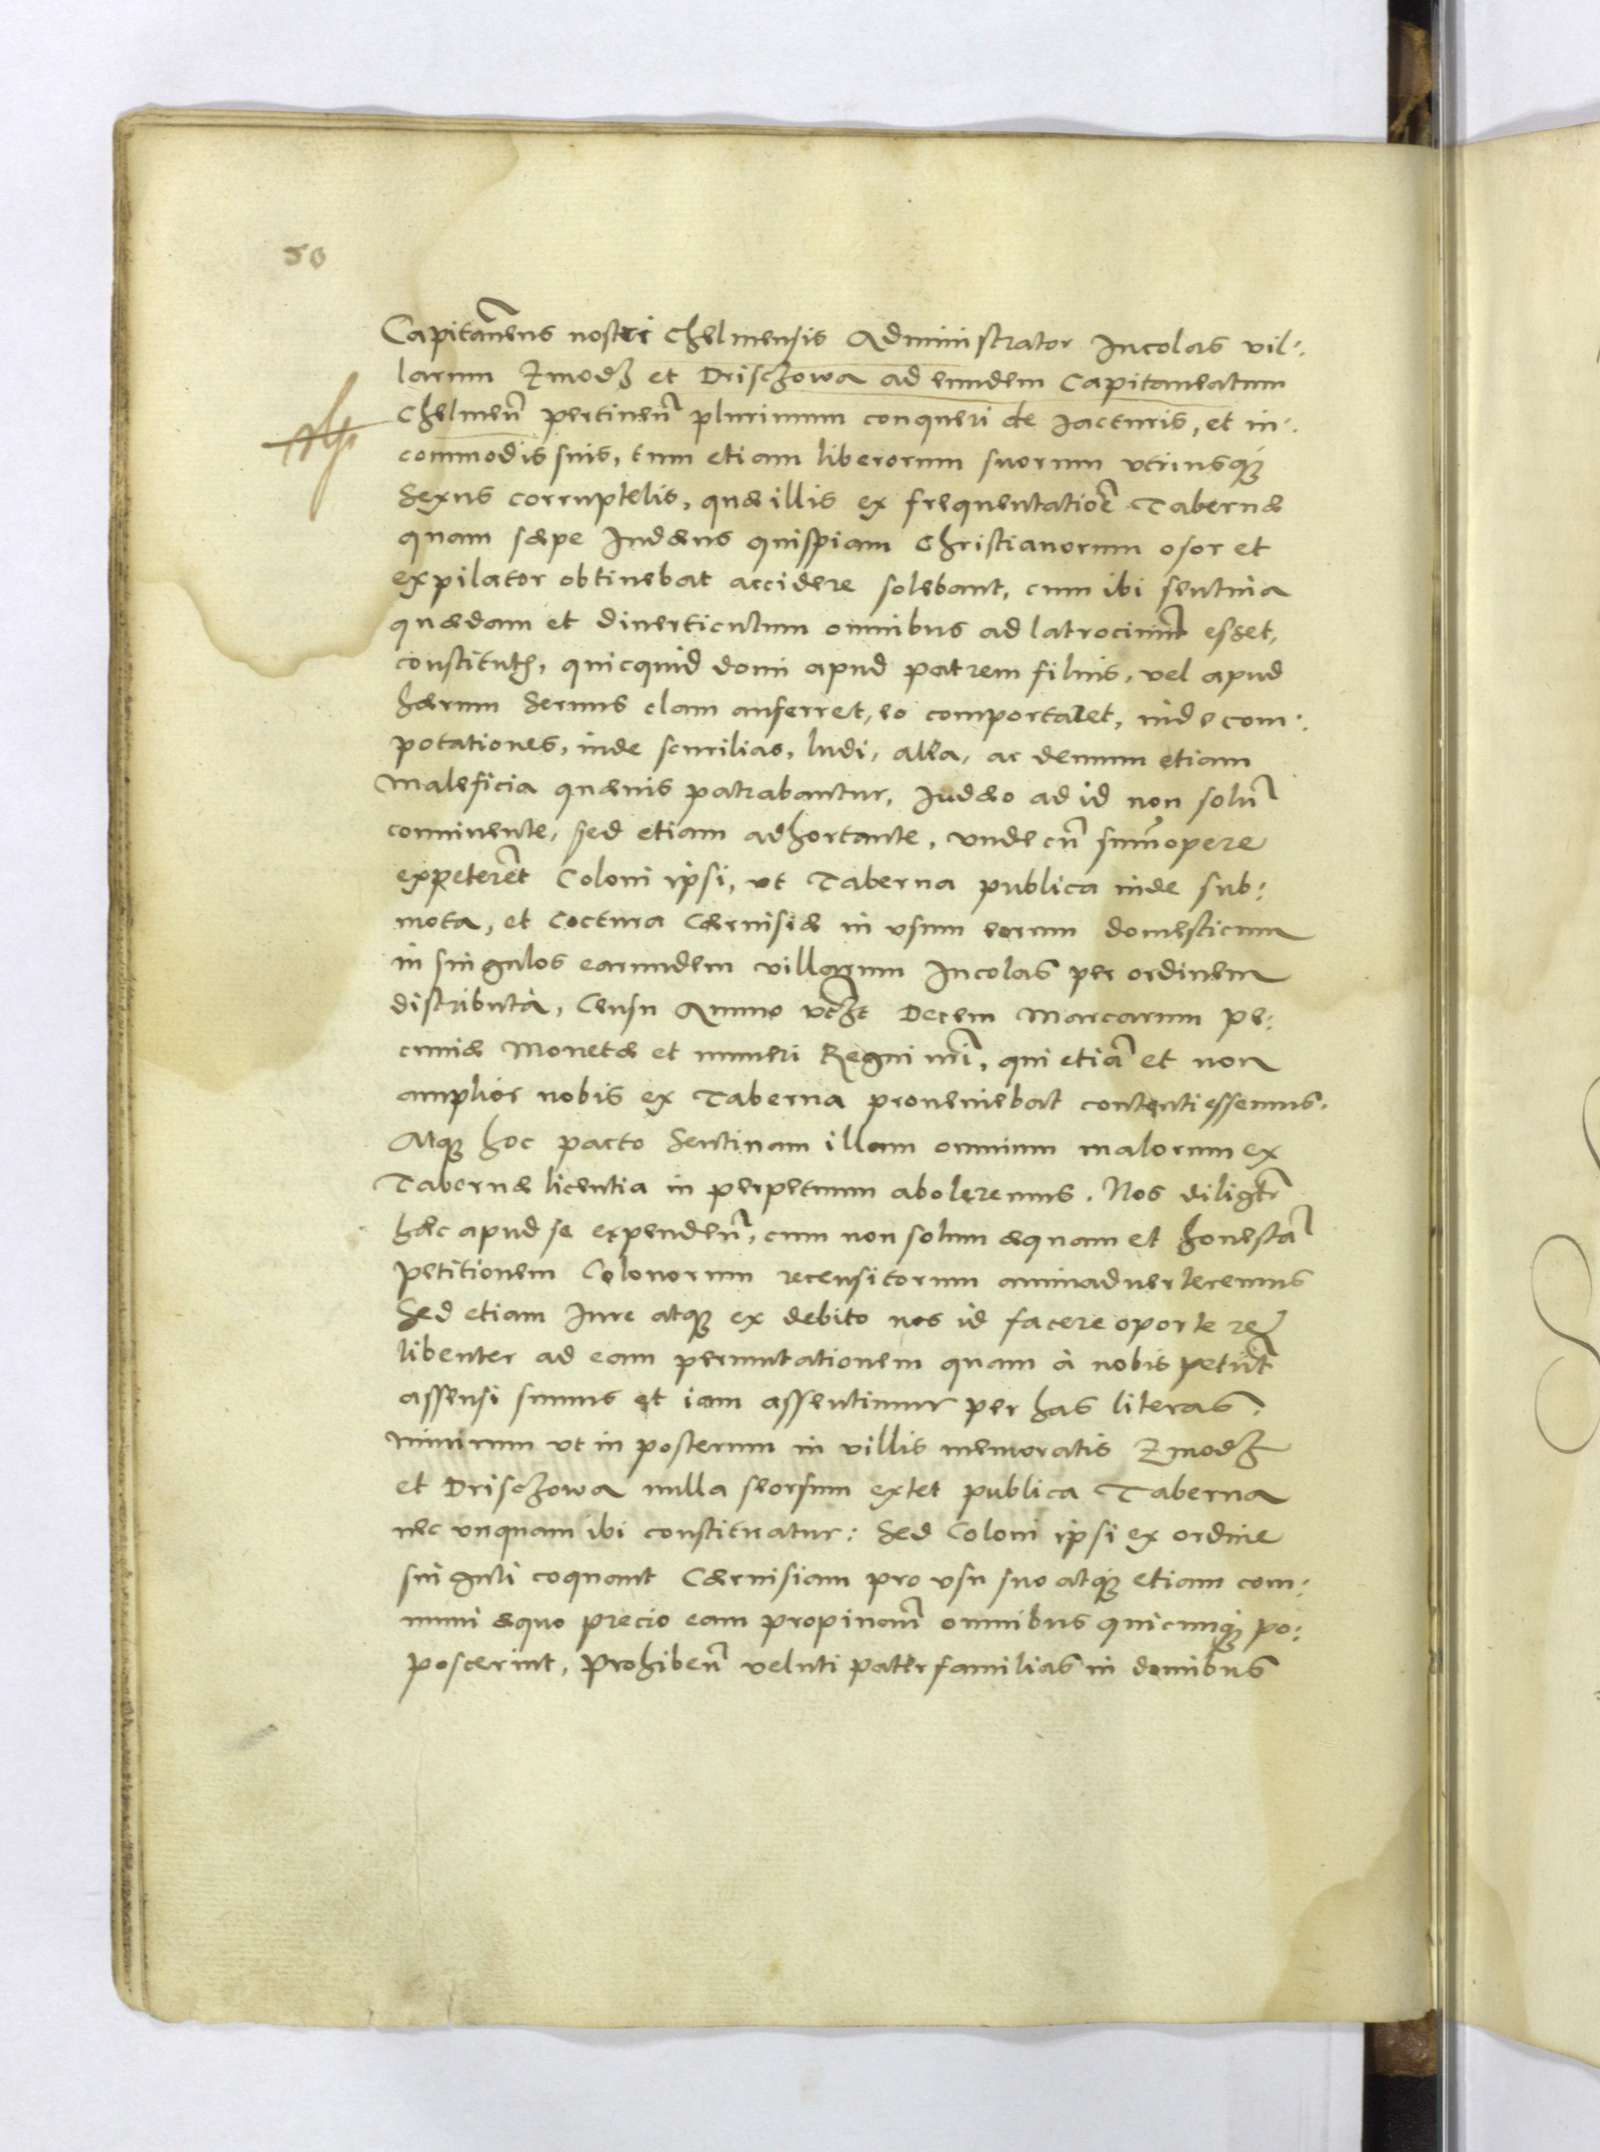 50
Capitaneus nostri Chelmensis Administrator Incolas vil:
larum Zmodz et Drisczowa ad eundem Capitaneatum
Chelmeñ pertineñ plurimum conqueri de Iacturis, et in:
commodis suis, tum etiam liberorum suorum utriusq́
Sexus corruptelis, quæ illis ex frequentatiõe Tabernæ
quam sæpe Iudæus quispiam Christianorum osor et
expilator obtinebat accidere solebant, cum ibi sentina
quædam et diverticulum omnibus ad latrociniũ esset,
constitutũ, quicquid domi apud patrem filius, vel apud
hærum Servus clam auferret, eo comportaret, inde com:
potationes, inde scurilias, ludi, alea, ac demum etiam
Maleficia quævis patrabantur, Iudæo ad id non solũ
connivente, sed etiam adhortante, unde cũ sum̃opere
expeterẽt Coloni ipsi, ut Taberna publica inde sub:
mota, et Coctura Cærvisiæ in usum eorum domesticum
in singulos earundem villarum Incolas per ordinem
distributa, Censu Annuo vczt Decem Marcarum pe:
cuniæ Monetæ et numeri Regni nr̃i, qui etiã et non
amplior nobis ex Taberna proveniebat contenti essemus.
Atq́ hoc pacto Sentinam illam omnium malorum ex
Tabernæ licentia in perpetuum aboleremus. Nos diligt̃r
hæc apud se expendeñ, cum non solum æquam et honestã
petitionem Colonorum recensitorum animadverteremus
Sed etiam Iure atq́ ex debito nos id facere oportere
libenter ad eam permutationem quam à nobis petũt
assensi sumus et iam assentimur per has literas.
Nimirum ut in posterum in villis memoratis Zmodz
et Drisczowa nulla seorsum extet publica Taberna
nec unquam ibi constituatur: Sed Coloni ipsi ex ordine
singuli coquant Cærvisiam pro usu suo atq́ etiam com:
muni æquo precio eam propinañ omnibus quicunq́ po:
poscerint, Prohibeñ veluti paterfamilias in domibus